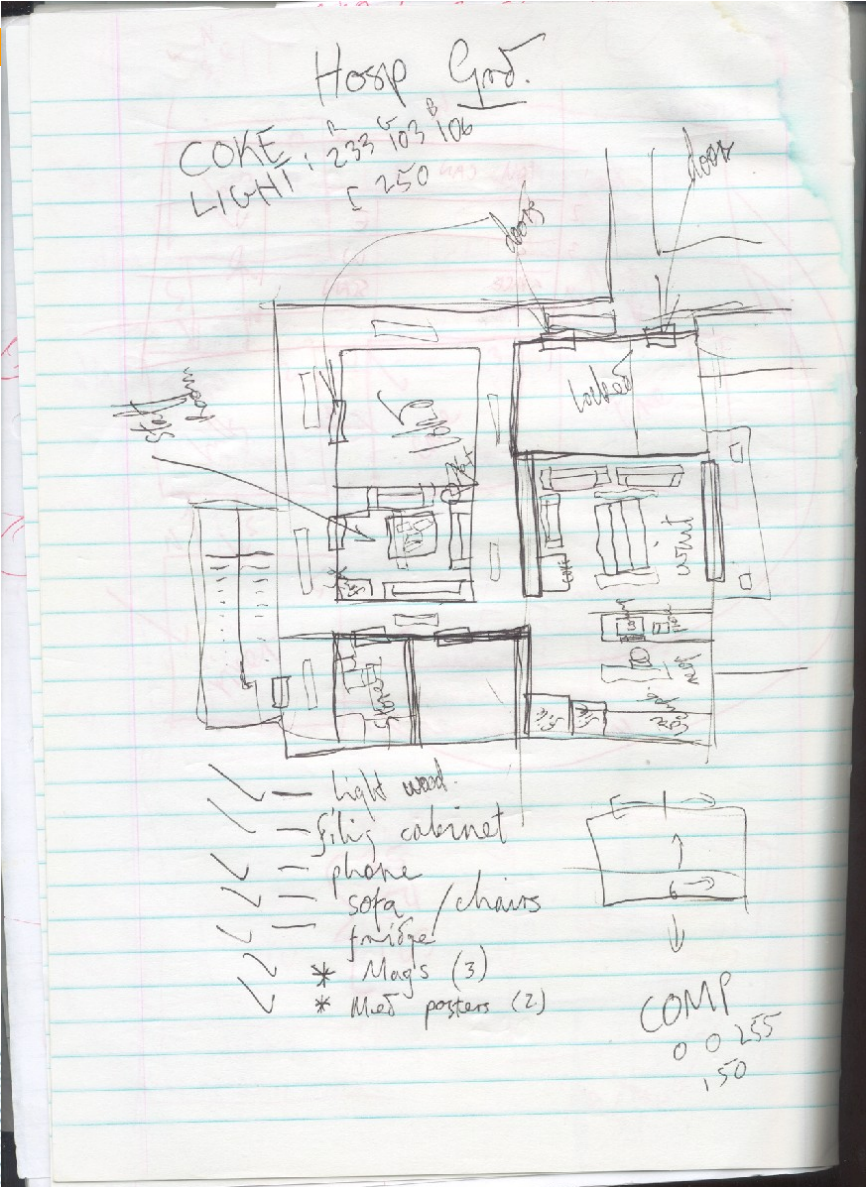 Hosp Grd.
R G B
COKE
LIGHT: 233 103 106
[ 250
doors
door
staff
room
locked
wait
store
Light wood.
filig cabinet
phone
sofa / chairs
fridge
* Mag's (3)
* Med posters (2)
COMP
0 0 255
, 50